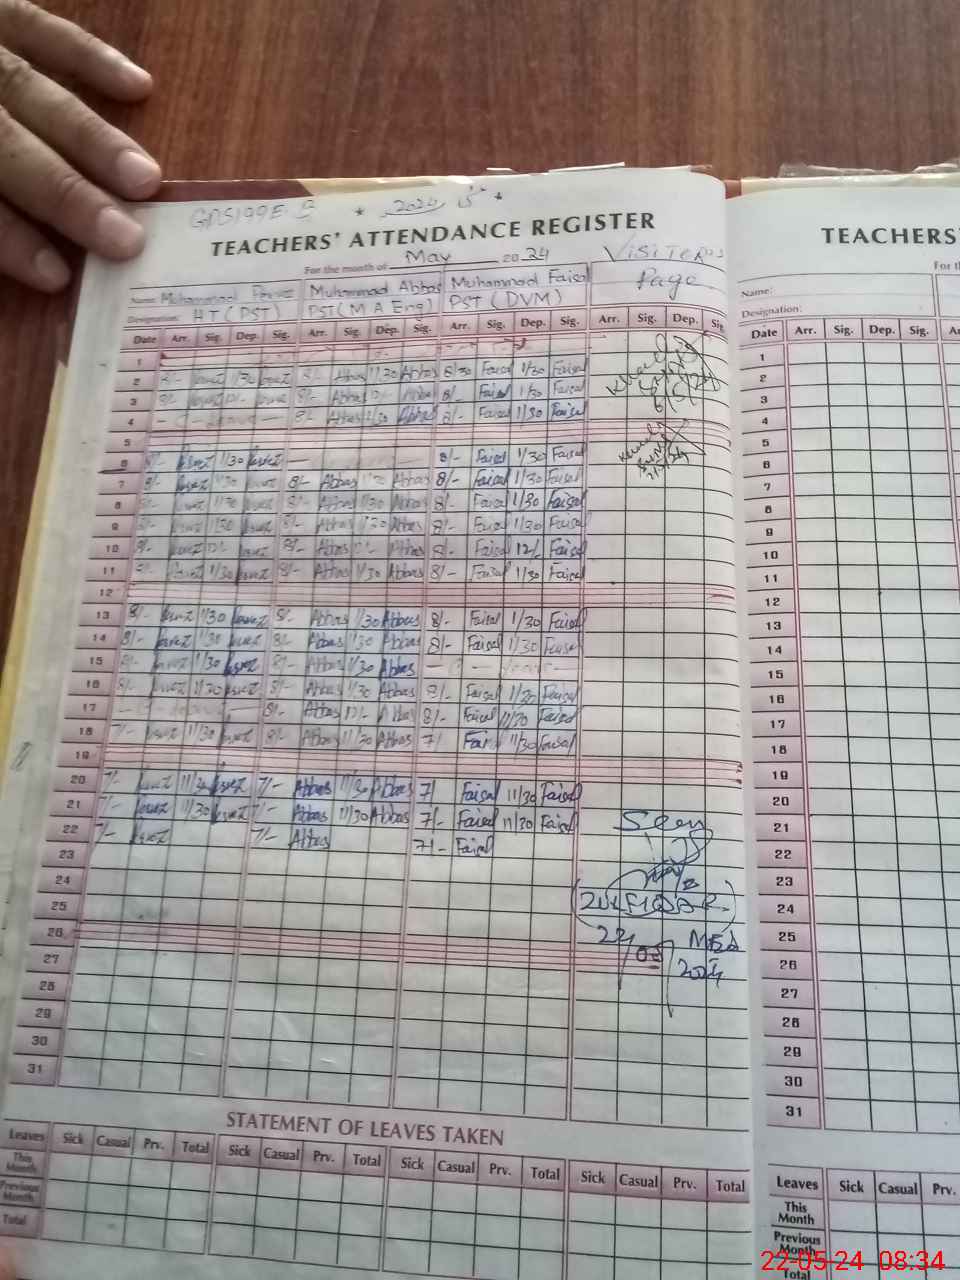 2024
TEACHERS' ATTENDANCE REGISTER
For the month of May 2024
VISITERS
Page
Name: Muhammad Pervez Muhammad Abbas Muhammad Faisal
Designation: HT (PST) PST (M A Eng) PST (DVM)
Date Arr. Sig. Dep. Sig. Arr. Sig. Dep. Sig. Arr. Sig. Dep. Sig. Arr. Sig. Dep. Sig.
1
2 8/- Pervez 1/30 Pervez 8/- Abbas 1/30 Abbas 8/30 Faisal 1/30 Faisal
3 8/- Pervez 12/- Pervez 8/- Abbas 12/- Abbas 8/- Faisal 1/30 Faisal
4 - C - Leave - 8/- Abbas 1/30 Abbas 8/- Faisal 1/30 Faisal
5
6 8/- Pervez 1/30 Pervez 8/- Faisal 1/30 Faisal
7 8/- Pervez 1/30 Pervez 8/- Abbas 1/30 Abbas 8/- Faisal 1/30 Faisal
8 8/- Pervez 1/30 Pervez 8/- Abbas 1/30 Abbas 8/- Faisal 1/30 Faisal
9 8/- Pervez 1/30 Pervez 8/- Abbas 1/30 Abbas 8/- Faisal 1/30 Faisal
10 8/- Pervez 12/- Pervez 8/- Abbas 12/- Abbas 8/- Faisal 12/- Faisal
11 8/- Pervez 1/30 Pervez 8/- Abbas 1/30 Abbas 8/- Faisal 1/30 Faisal
12
13 8/- Pervez 1/30 Pervez 8/- Abbas 1/30 Abbas 8/- Faisal 1/30 Faisal
14 8/- Pervez 1/30 Pervez 8/- Abbas 1/30 Abbas 8/- Faisal 1/30 Faisal
15 8/- Pervez 1/30 Pervez 8/- Abbas 1/30 Abbas - C - Leave -
16 8/- Pervez 1/30 Pervez 8/- Abbas 1/30 Abbas 8/- Faisal 1/30 Faisal
17 - C - Leave - 8/- Abbas 12/- Abbas 8/- Faisal 11/30 Faisal
18 7/- Pervez 11/30 Pervez 8/- Abbas 11/30 Abbas 7/ Faisal 11/30 Faisal
19
20 7/- Pervez 11/30 Pervez 7/- Abbas 11/30 Abbas 7/ Faisal 11/30 Faisal
21 7/- Pervez 11/30 Pervez 7/- Abbas 11/30 Abbas 7/- Faisal 11/30 Faisal
22 7/- Pervez 7/- Abbas 7/- Faisal
23
24
25
26
27
28
29
30
31
6/5/24
Seen
(ZULFIQAR)
MEA
22/05/2024
STATEMENT OF LEAVES TAKEN
Leaves Sick Casual Prv. Total Sick Casual Prv. Total Sick Casual Prv. Total Sick Casual Prv. Total
This Month
Previous Month
Total
TEACHERS'
For th
Name:
Designation:
Date Arr. Sig. Dep. Sig.
1
2
3
4
5
6
7
8
9
10
11
12
13
14
15
16
17
18
19
20
21
22
23
24
25
26
27
28
29
30
31
Leaves Sick Casual Prv.
This Month
Previous Month
Total
22-05-24 08:34